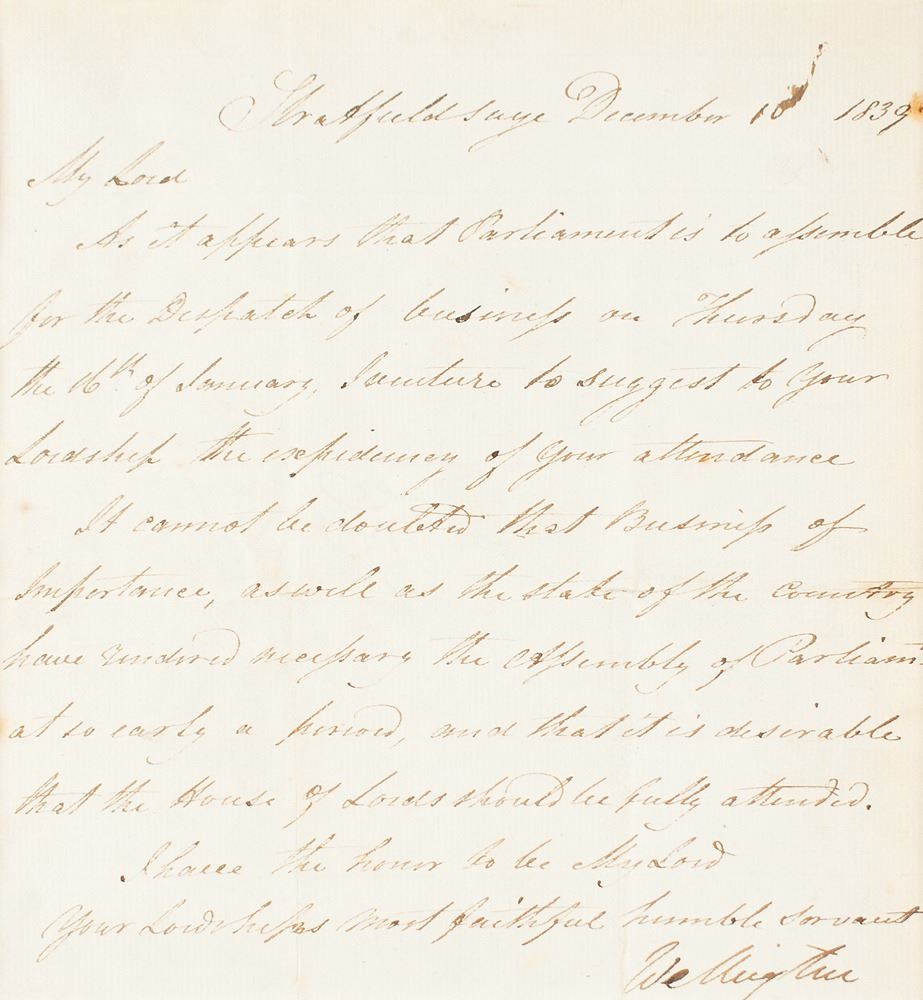 Stratfieldsaye December 10 1839
My Lord
As it appears that Parliament is to assemble
for the Despatch of business on Thursday
the 16th of January, I venture to suggest to your
Lordship the expediency of your attendance
It cannot be doubted that Business of
Importance, as well as the state of the Country
have rendered necessary the Assembly of Parliamt
at so early a period, and that it is desirable
that the House of Lords should be fully attended.
I have the honor to be My Lord
Your Lordships most faithful humble servant
Wellington